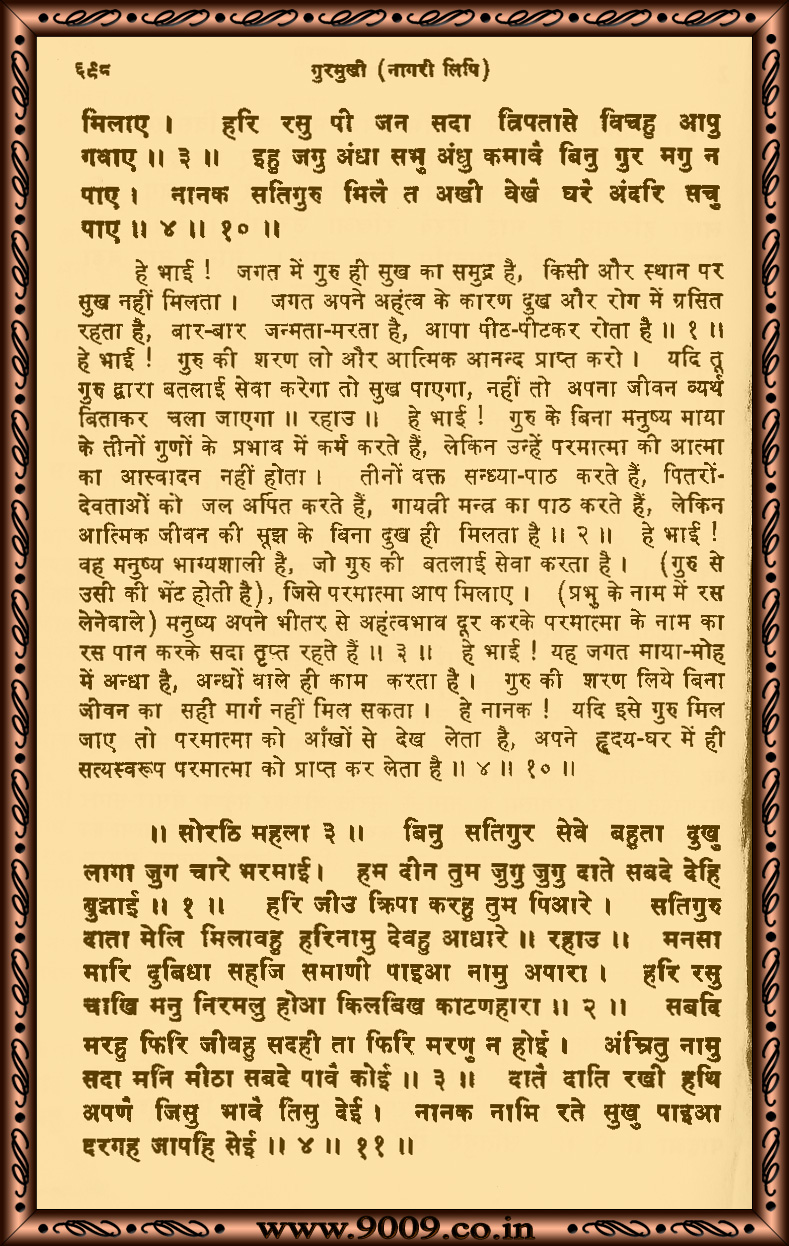 ६९८ गुरमुखी (नागरी लिपि)
मिलाए । हरि रसु पी जन सदा त्रिपतासे विचहु आपु
गवाए ॥ ३ ॥ इहु जगु अंधा सभु अंधु कमावै बिनु गुर मगु न
पाए । नानक सतिगुरु मिलै त अखी वेखै घरै अंदरि सचु
पाए ॥ ४ ॥ १० ॥
हे भाई ! जगत में गुरु ही सुख का समुद्र है, किसी और स्थान पर
सुख नहीं मिलता । जगत अपने अहंत्व के कारण दुख और रोग में ग्रसित
रहता है, बार-बार जन्मता-मरता है, आपा पीट-पीटकर रोता है ॥ १ ॥
हे भाई ! गुरु की शरण लो और आत्मिक आनन्द प्राप्त करो । यदि तू
गुरु द्वारा बतलाई सेवा करेगा तो सुख पाएगा, नहीं तो अपना जीवन व्यर्थ
बिताकर चला जाएगा ॥ रहाउ ॥ हे भाई ! गुरु के बिना मनुष्य माया
के तीनों गुणों के प्रभाव में कर्म करते हैं, लेकिन उन्हें परमात्मा की आत्मा
का आस्वादन नहीं होता । तीनों वक्त सन्ध्या-पाठ करते हैं, पितरों-
देवताओं को जल अर्पित करते हैं, गायत्री मन्त्र का पाठ करते हैं, लेकिन
आत्मिक जीवन की सूझ के बिना दुख ही मिलता है ॥ २ ॥ हे भाई !
वह मनुष्य भाग्यशाली है, जो गुरु की बतलाई सेवा करता है । (गुरु से
उसी की भेंट होती है), जिसे परमात्मा आप मिलाए । (प्रभु के नाम में रस
लेनेवाले) मनुष्य अपने भीतर से अहंत्वभाव दूर करके परमात्मा के नाम का
रस पान करके सदा तृप्त रहते हैं ॥ ३ ॥ हे भाई ! यह जगत माया-मोह
में अन्धा है, अन्धों वाले ही काम करता है । गुरु की शरण लिये बिना
जीवन का सही मार्ग नहीं मिल सकता । हे नानक ! यदि इसे गुरु मिल
जाए तो परमात्मा को आँखों से देख लेता है, अपने हृदय-घर में ही
सत्यस्वरूप परमात्मा को प्राप्त कर लेता है ॥ ४ ॥ १० ॥
॥ सोरठि महला ३ ॥ बिनु सतिगुर सेवे बहुता दुखु
लागा जुग चारे भरमाई । हम दीन तुम जुगु जुगु दाते सबदे देहि
बुझाई ॥ १ ॥ हरि जीउ क्रिपा करहु तुम पिआरे । सतिगुरु
दाता मेलि मिलावहु हरिनामु देवहु आधारे ॥ रहाउ ॥ मनसा
मारि दुबिधा सहजि समाणी पाइआ नामु अपारा । हरि रसु
चाखि मनु निरमलु होआ किलबिख काटणहारा ॥ २ ॥ सबदि
मरहु फिरि जीवहु सदही ता फिरि मरणु न होई । अंम्रितु नामु
सदा मनि मीठा सबदे पावै कोई ॥ ३ ॥ दातै दाति रखी हथि
अपणै जिसु भावै तिसु देई । नानक नामि रते सुखु पाइआ
दरगह जापहि सेई ॥ ४ ॥ ११ ॥
www.9009.co.in